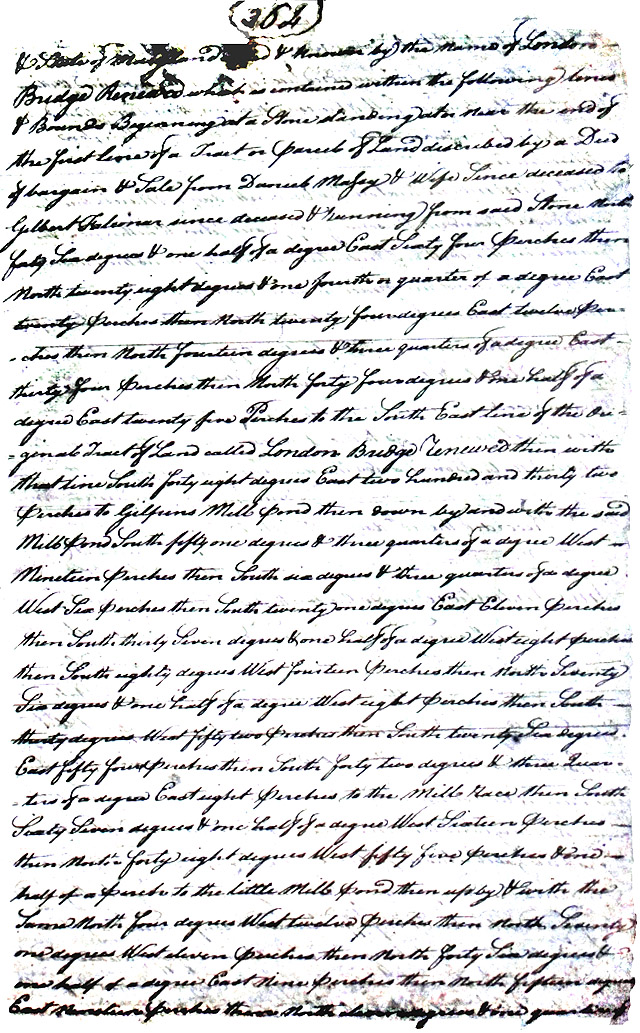 364
& State of Maryland & Known by the name of London
Bridge Renewed which is contained within the following lines
& Bounds Beginning at a Stone standing at or near the end of
the first line of a Tract or Parcel of Land described by a Deed
of bargain & Sale from Daniel Massy & Wife Since deceased to
Gilbert Falconar since deceased & running from said Stone North
forty Six degrees & one half of a degree East Sixty four Perches then
North twenty eight degrees & one fourth or quarter of a degree East
twenty Perches then North twenty four degrees East twelve Per-
-ches then North fourteen degrees & three quarters of a degree East
thirty four Perches then North forty four degrees & one half of a
degree East twenty five Perches to the South East line of the Ori-
=ginal Tract of Land called London Bridge Renewed then with
that line South forty eight degrees East two hundred and thirty two
Perches to Gilpins Mill Pond then down by and with the said
Mill Pond South fifty one degrees & three quarters of a degree West
Nineteen Perches then South six degrees & three quarters of a degree
West Six Perches then South twenty one degrees East Eleven Perches
then South thirty Seven degrees & one half of a degree West eight Perches
then South eighty degrees West fourteen Perches then North Seventy
Six degrees & one half of a degree West eight Perches then South
thirty degrees West fifty two Perches then South twenty Six degrees
East fifty four Perches then South forty two degrees & three Quar-
-ters of a degree East eight Perches to the Mill Race then South
Sixty Seven degrees & one half of a degree West Sixteen Perches
then North forty eight degrees West fifty five Perches & one
half of a Perch to the little Mill Pond then up by & with the
Same North four degrees West twelve Perches then North Seventy
one degrees West eleven Perches then North forty Six degrees &
one half of a degree East Nine Perches then North fifteen degrees
East Nineteen Perches then North eleven degrees & one quarter of